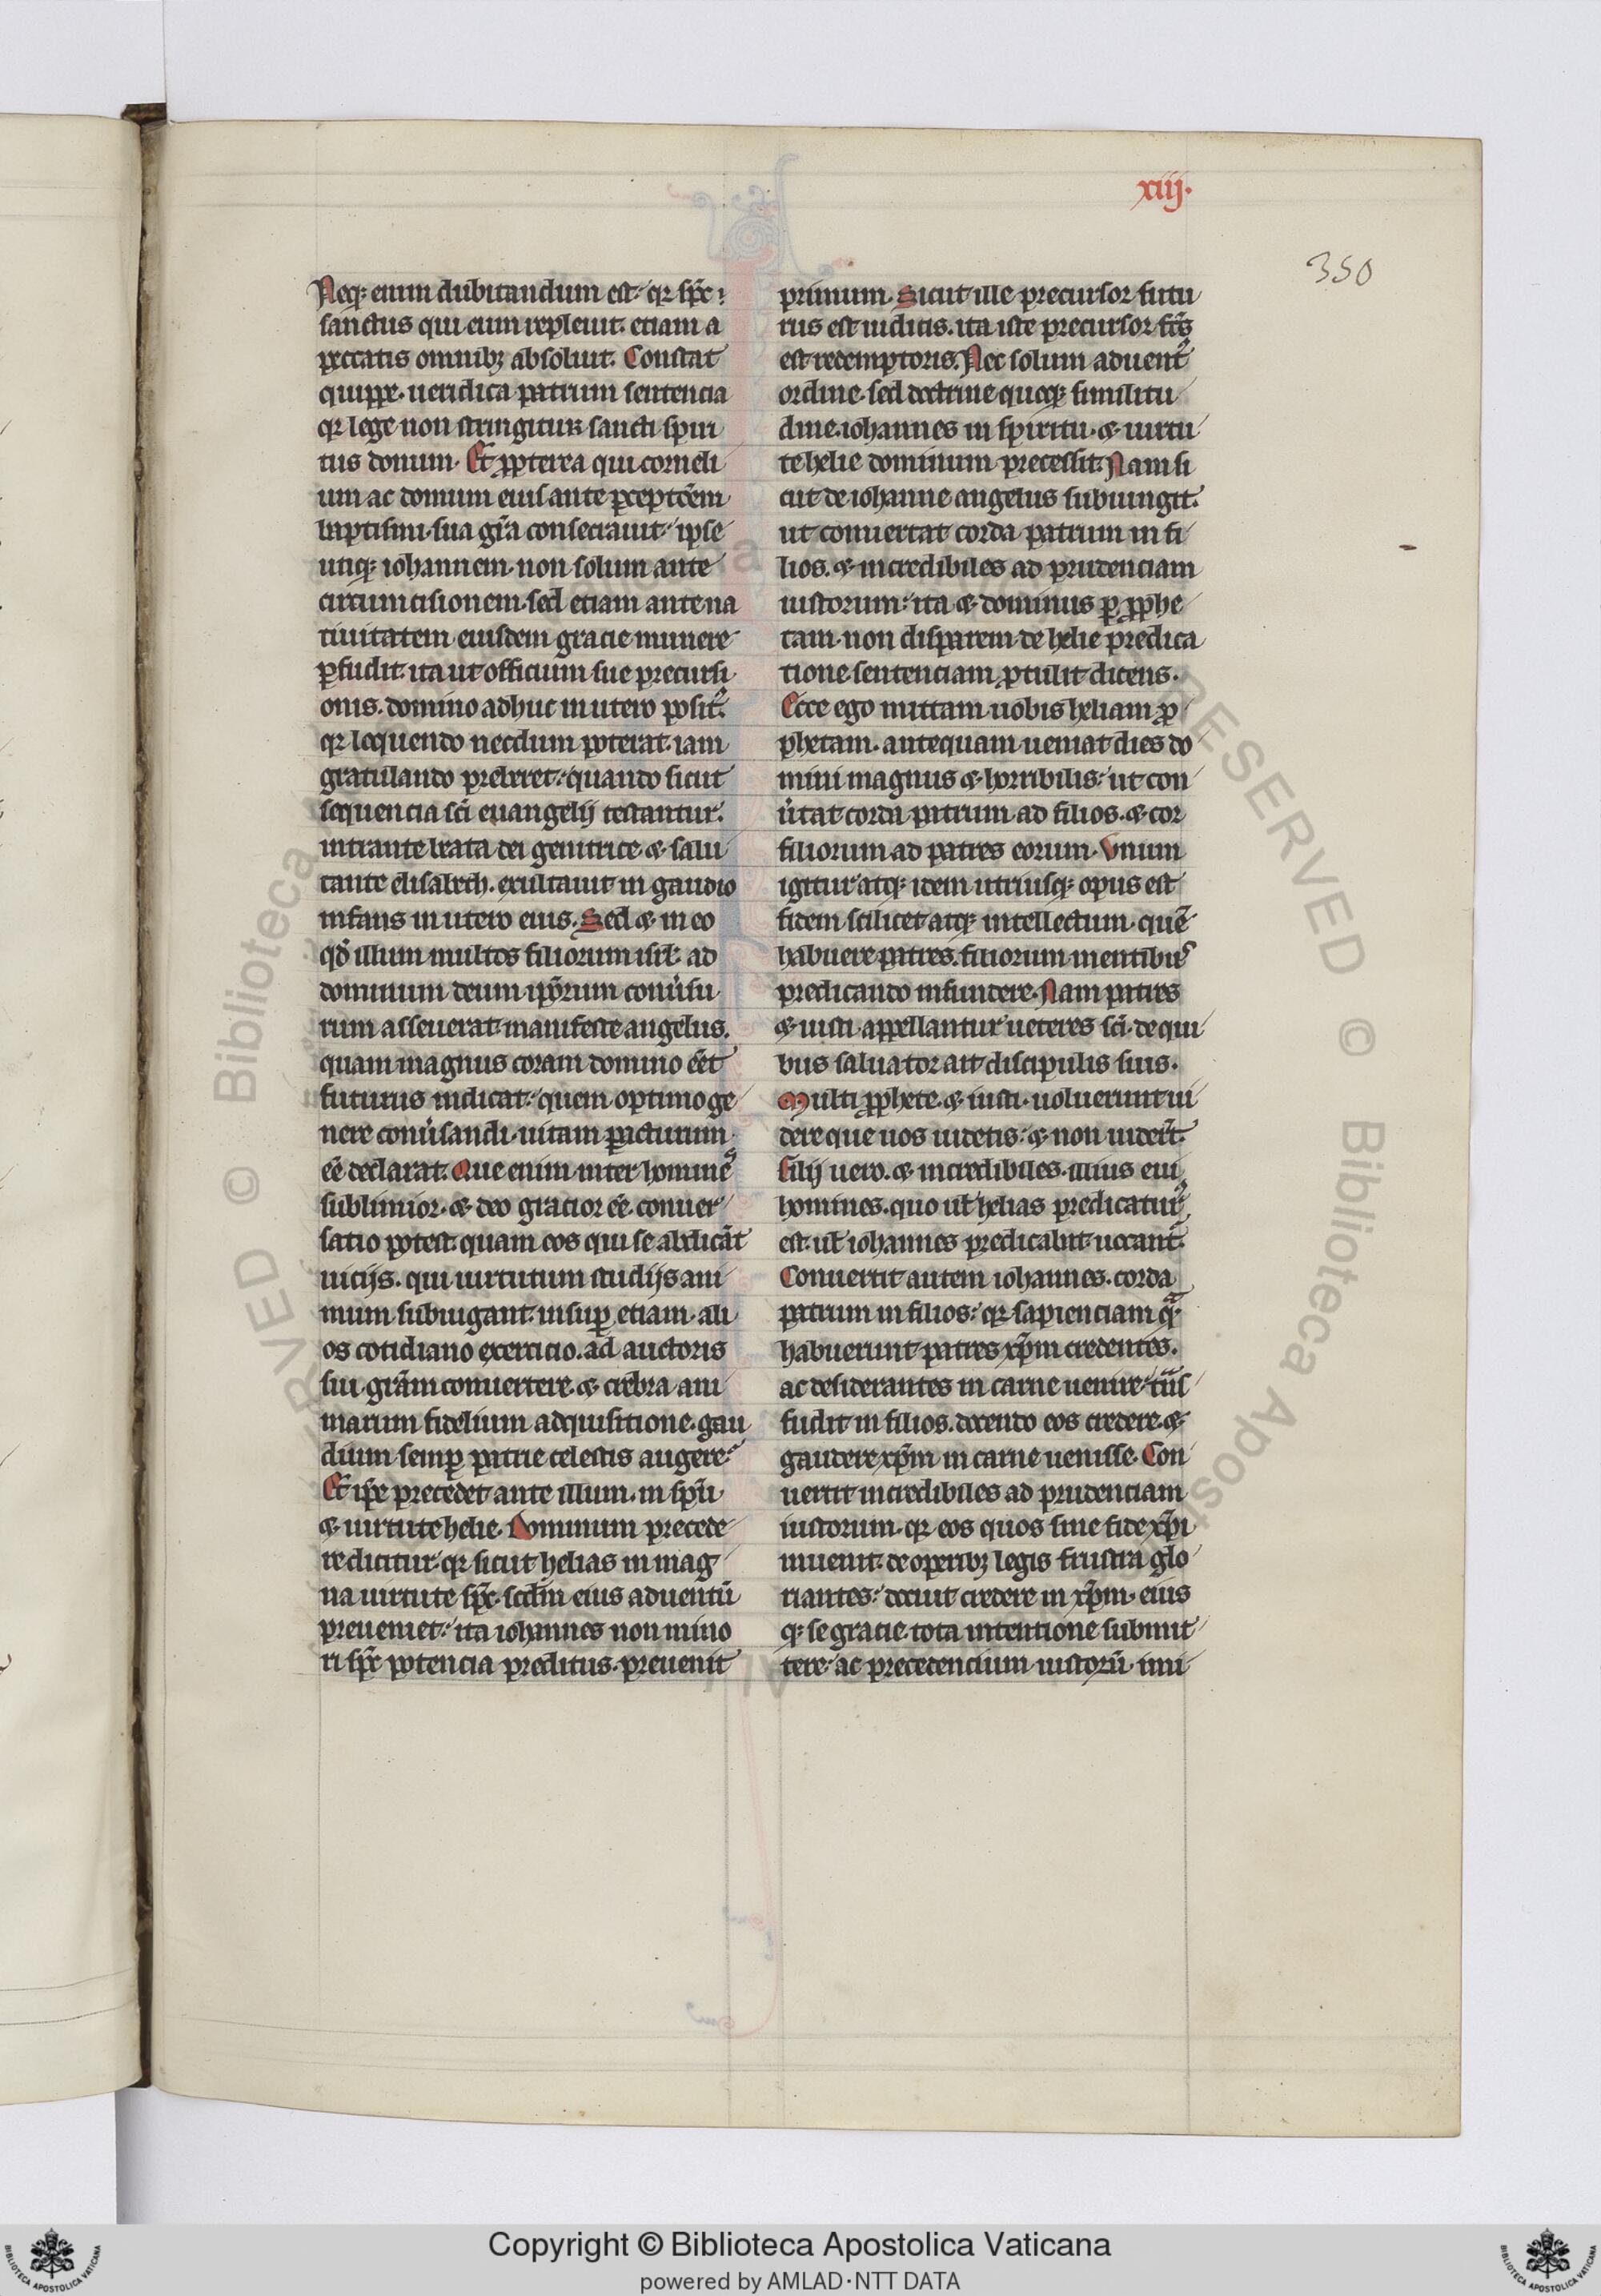 xiij.
350
Neq; enim dubitandum est. qr spc
sanctus qui eum repleuit. etiam a
peccatis omnibz absoluit. Constat
quippe. ueridica patrum sentencia
qr lege non stringitur sancti spiri
tus donum. Et ꝓpterea qui corneli
um ac domum eius ante ꝑceptōem
baptismi. sua grā consecrauit. ipse
utiq; iohannem. non solum ante
circumcisionem. sed etiam ante na
tiuitatem eiusdem gracie munere
ꝑfudit. ita ut officium sue precursi
onis. domino adhuc in utero posit᷒.
qr loquendo necdum poterat. iam
gratulando preberet. quando sicut
sequencia sci euangelij testantur.
intrante beata dei genitrice & salu
tante elisabeth. exultauit in gaudio
infans in utero eius. Sed & in eo
qd illum multos filiorum isrl ad
dominum deum ipsorum conuersu
rum asseuerat. manifeste angelus.
quam magnus coram domino eēt
futurus indicat. quem optimo ge
nere conuersandi. uitam ꝑacturum
eē declarat. Que enim inter homines
sublimior. & deo gracior eē. conuer
satio potest. quam eos qui se abdicāt
uicijs. qui uirtutum studijs ani
mum subiugant. insuꝑ etiam. ali
os cotidiano exercicio. ad auctoris
sui. grām conuertere. & crebra ani
marum fidelium adquisitione. gau
dium semꝑ patrie celestis augere.
Et ipse precedet ante illum. in spu
& uirtute helie. Dominum precede
re dicitur. qr sicut helias in mag
na uirtute spc. scdm eius aduentū
preueniet. ita iohannes non mino
ri spc potencia preditus. preuenit
primum. Sicut ille precursor futu
rus est iudicis. ita iste precursor fcs
est redemptoris. Nec solum aduent᷒
ordine. sed doctrine quoq; similitu
dine. iohannes in spiritu. & uirtu
te helie dominum precessit. Nam si
cut de iohanne angelus subiungit.
ut conuertat corda patrum in fi
lios. & incredibiles ad prudenciam
iustorum. ita & dominus ꝑ ꝓphe
tam. non disparem. de helie predica
tione sentenciam ꝓtulit dicens.
Ecce ego mittam uobis heliam ꝓ
phetam. antequam ueniat dies do
mini magnus & horribilis. ut con
u̓tat corda patrum ad filios. & cor
filiorum ad patres eorum. Unum
igitur atq; idem utriusq; opus est
fidem scilicet atq; intellectum. quē
habuere patres. filiorum mentib᷒
predicando infundere. Nam patres
& iusti. appellantur ueteres sci. de qui
bus saluator ait discipulis suis.
Multi ꝓphete. & iusti. uoluerunt ui
dere que uos uidetis. & non uidert.
Filij uero. & incredibiles. illius eui
homines. quo ul helias predicatur᷒
est. ul iohannes predicabit. uocant᷒.
Conuertit autem iohannes. corda
patrum in filios. qr sapienciam qᵃ
habuerunt patres xpm credentes.
ac desiderantes in carne uenire. tns
fudit in filios. docendo eos credere. &
gaudere xpm in carne uenisse. Con
uertit incredibiles ad prudenciam
iustorum. qr eos quos sine fide xpi
inuenit. de operibz legis frustra glo
riantes. docuit credere in xpm. eius
q; se gracie. tota intentione submit
tere. ac precedencium iustorū. imi
Copyright © Biblioteca Apostolica Vaticana
powered by AMLAD·NTT DATA